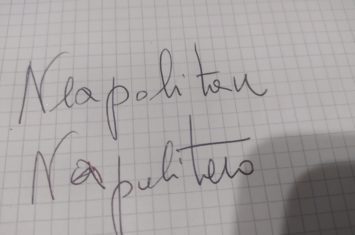 Neapolitan
Napulitero